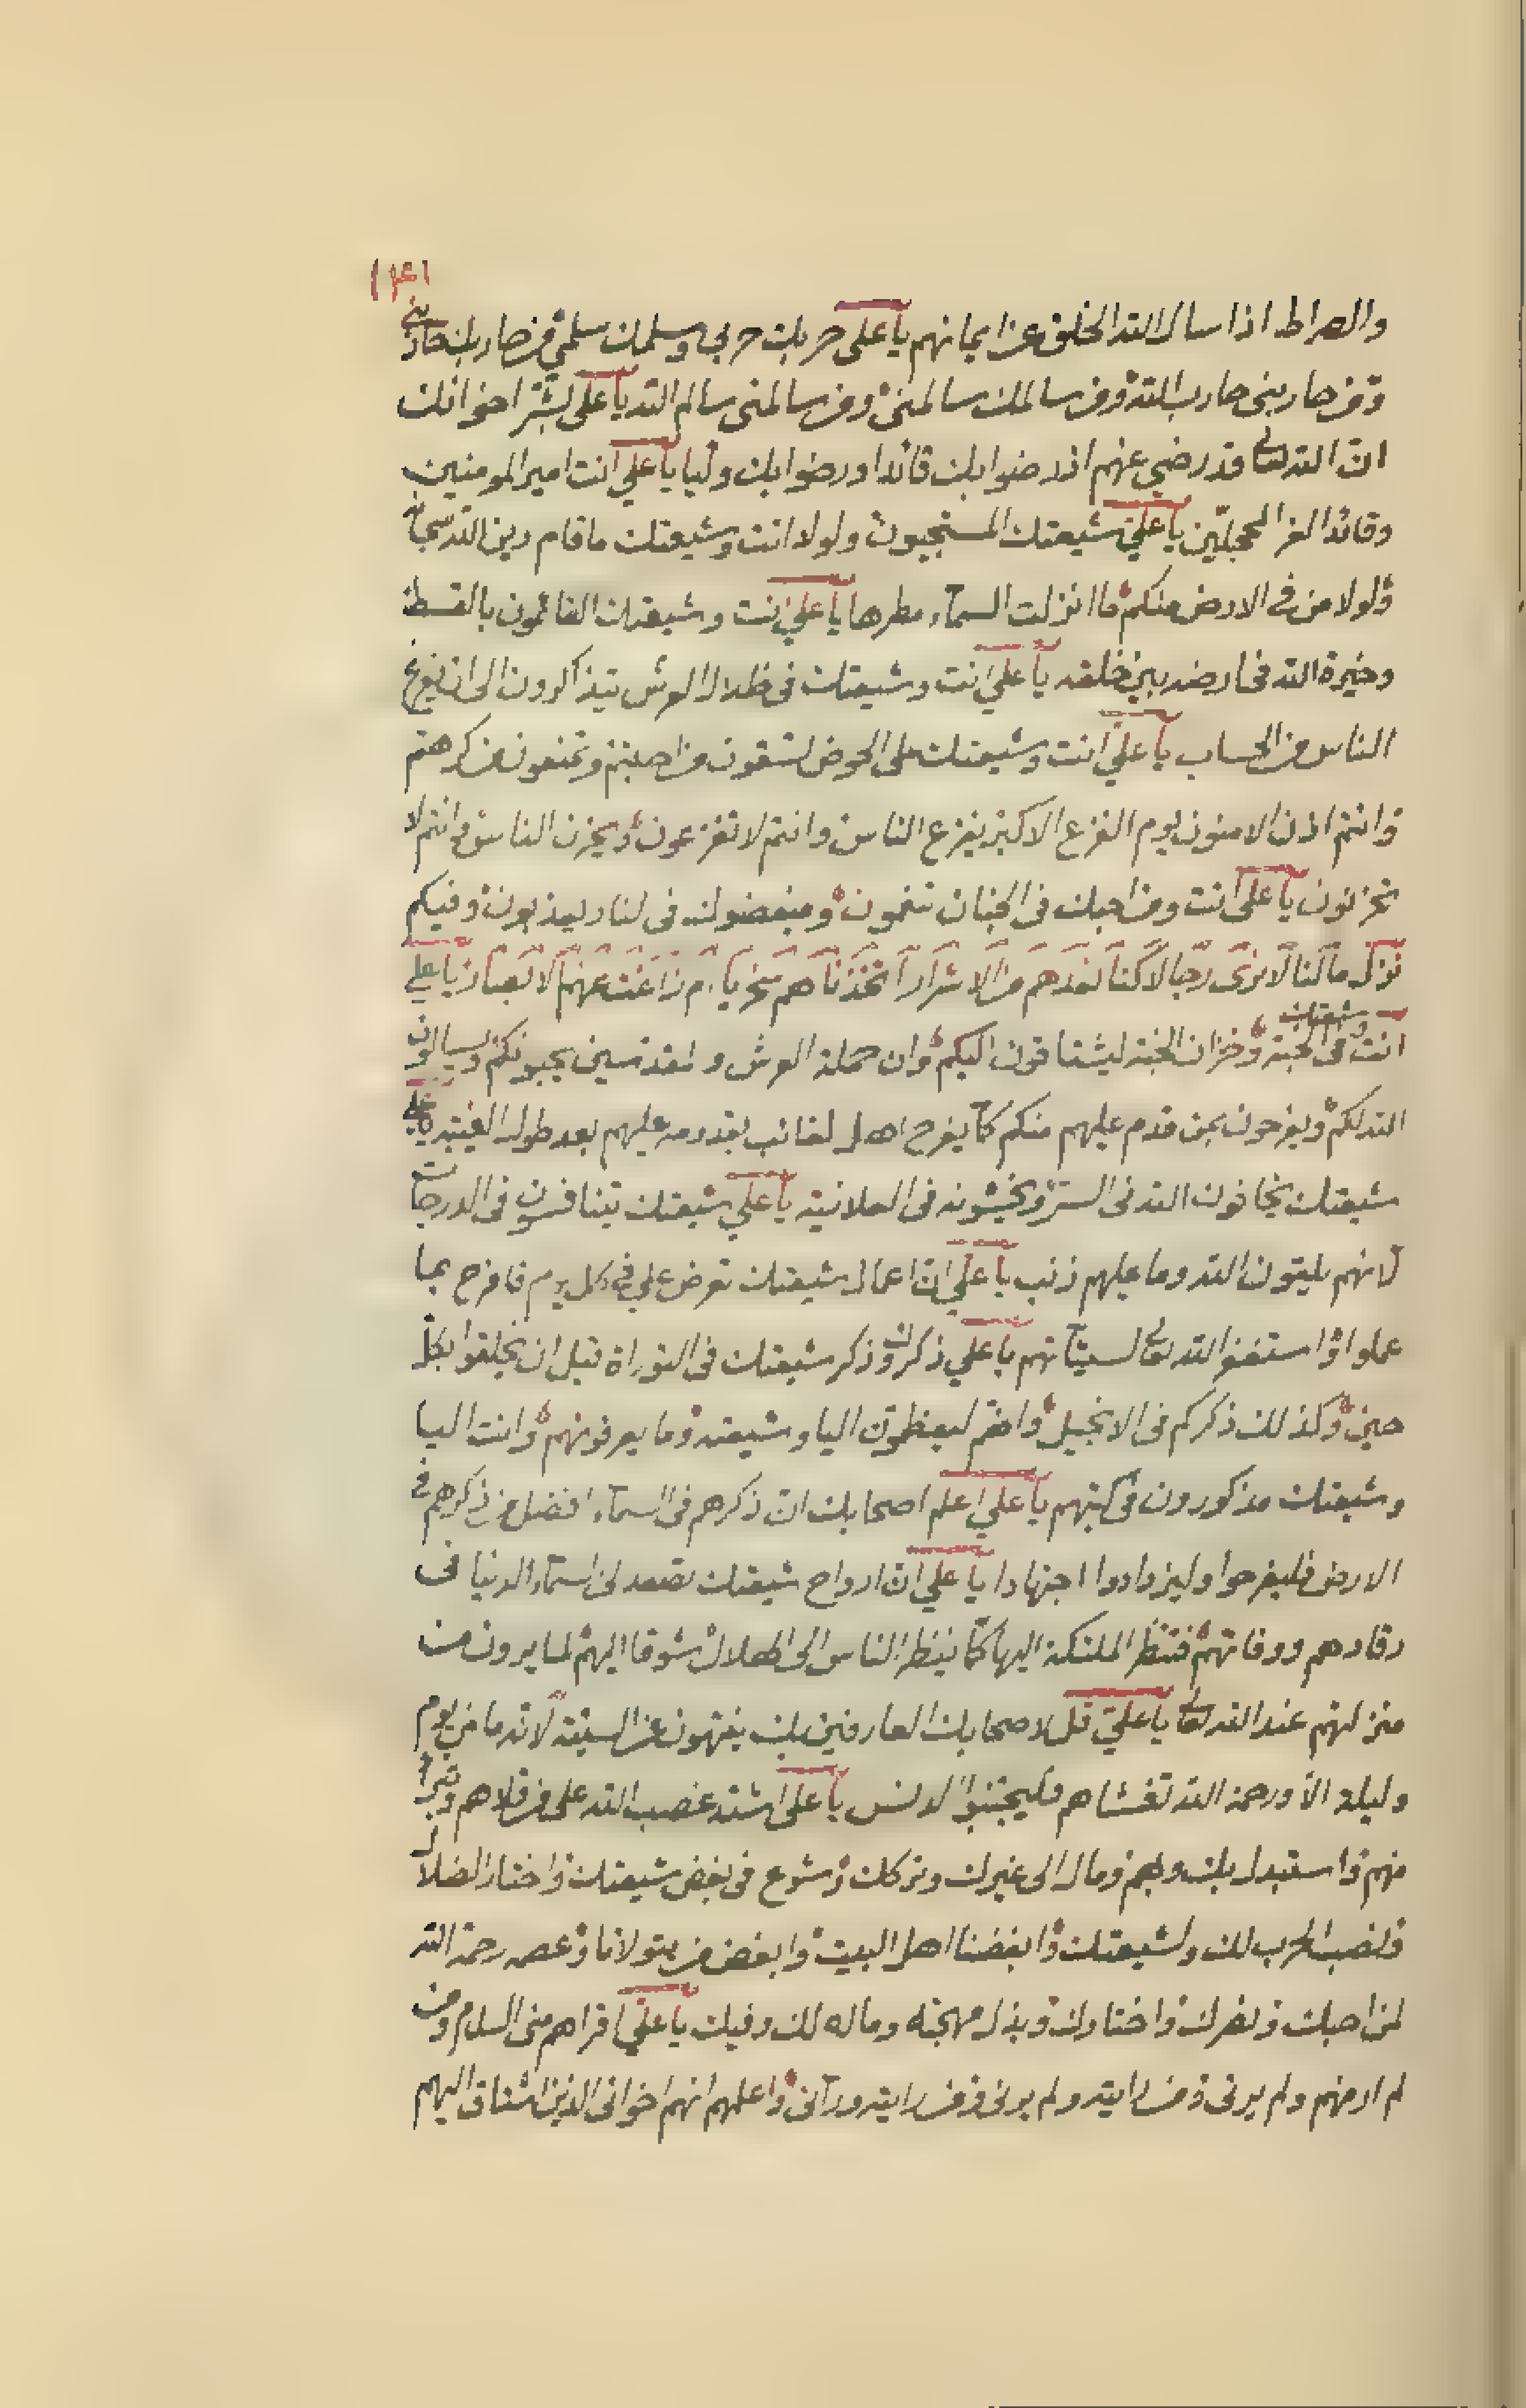 والصراط اذا سال الله الخلق عن ايمانهم يا على حربك حربى وسلمك سلمى فمن حاربك حاربنى
ومن حاربنى حارب الله ومن سالمك سالمنى ومن سالمنى سالم الله يا على بشر اخوانك
ان الله تعالى قد رضى عنهم اذ رضوا بك قائدا ورضوا بك وليا يا على انت امير المومنين
وقائد الغر المحجلين يا على شيعتك المنتجبون ولولا انت وشيعتك ما قام دين الله سبحانه
ولولا من فى الارض منكم ما انزلت السمآء مطرها يا على انت وشيعتك القائمون بالقسط
وخيرة الله فى ارضه بين خلقه يا على انت وشيعتك فى ظلال العرش تتذاكرون الى ان يفرغ
الناس من الحساب يا على انت وشيعتك على الحوض تسقون من احببتم وتمنعون من كرهتم
وانتم الامنون يوم الفزع الاكبر يفزع الناس وانتم لا تفزعون ويحزن الناس وانتم لا
تحزنون يا على انت ومن احبك فى الجنان تنعمون ومبغضوك فى النار يعذبون وفيكم
نزل ما لنا لا نرى رجالا كنا نعدهم من الاشرار اتخذناهم سخريا ام زاغت عنهم الابصار يا على
انت وشيعتك فى الجنة وخزان الجنة يشتاقون اليكم وان حملة العرش والمقدسين يحبونكم ويسالون
الله لكم ويفرحون بمن قدم عليهم منكم كما يفرح اهل الغائب بقدومه عليهم بعد طول الغيبة يا على
شيعتك يخافون الله فى السر ويخشونه فى العلانية يا على شيعتك يتنافسون فى الدرجات
لانهم يلقون الله وما عليهم ذنب يا على ان اعمال شيعتك تعرض على فى كل يوم فافرح بما
عملوا واستغفر الله تعالى لسيئاتهم يا على ذكرك وذكر شيعتك فى التوراة قبل ان يخلقوا بكل
حين وكذلك ذكركم فى الانجيل وانهم ليعظمون اليا وشيعته وما يعرفونهم وانت اليا
وشيعتك مذكورون فى كتبهم يا على اعلم اصحابك ان ذكرهم فى السمآء افضل من ذكرهم فى
الارض فليفرحوا وليزدادوا اجتهادا يا على ان ارواح شيعتك تصعد الى السمآء الدنيا فى
رقادهم ووفاتهم فتنظر الملئكة اليها كما ينظر الناس الى الهلال شوقا اليهم لما يرون من
منزلتهم عند الله تعالى يا على قل لاصحابك العارفين بك ينتهون عن السيئة لانه ما من يوم
وليلة الا ورحمة الله تغشاهم فليجتنبوا الدنس يا على اشتد غضب الله على من قلاهم وتبرا
منهم واستبدل بك وبهم ومال الى غيرك وتركك وشرع فى بغض شيعتك واختار الضلال
ونصب الحرب لك ولشيعتك وابغضنا اهل البيت وابغض من يتولانا وعم رحمة الله
لمن احبك ونصرك واختارك وبذل مهجته وماله لك وفيك يا على اقراهم منى السلام ومن
لم ار منهم ولم يرنى ومن رايته ولم يرنى ومن رايته ورآنى واعلمهم انهم اخوانى الذين اشتاق اليهم